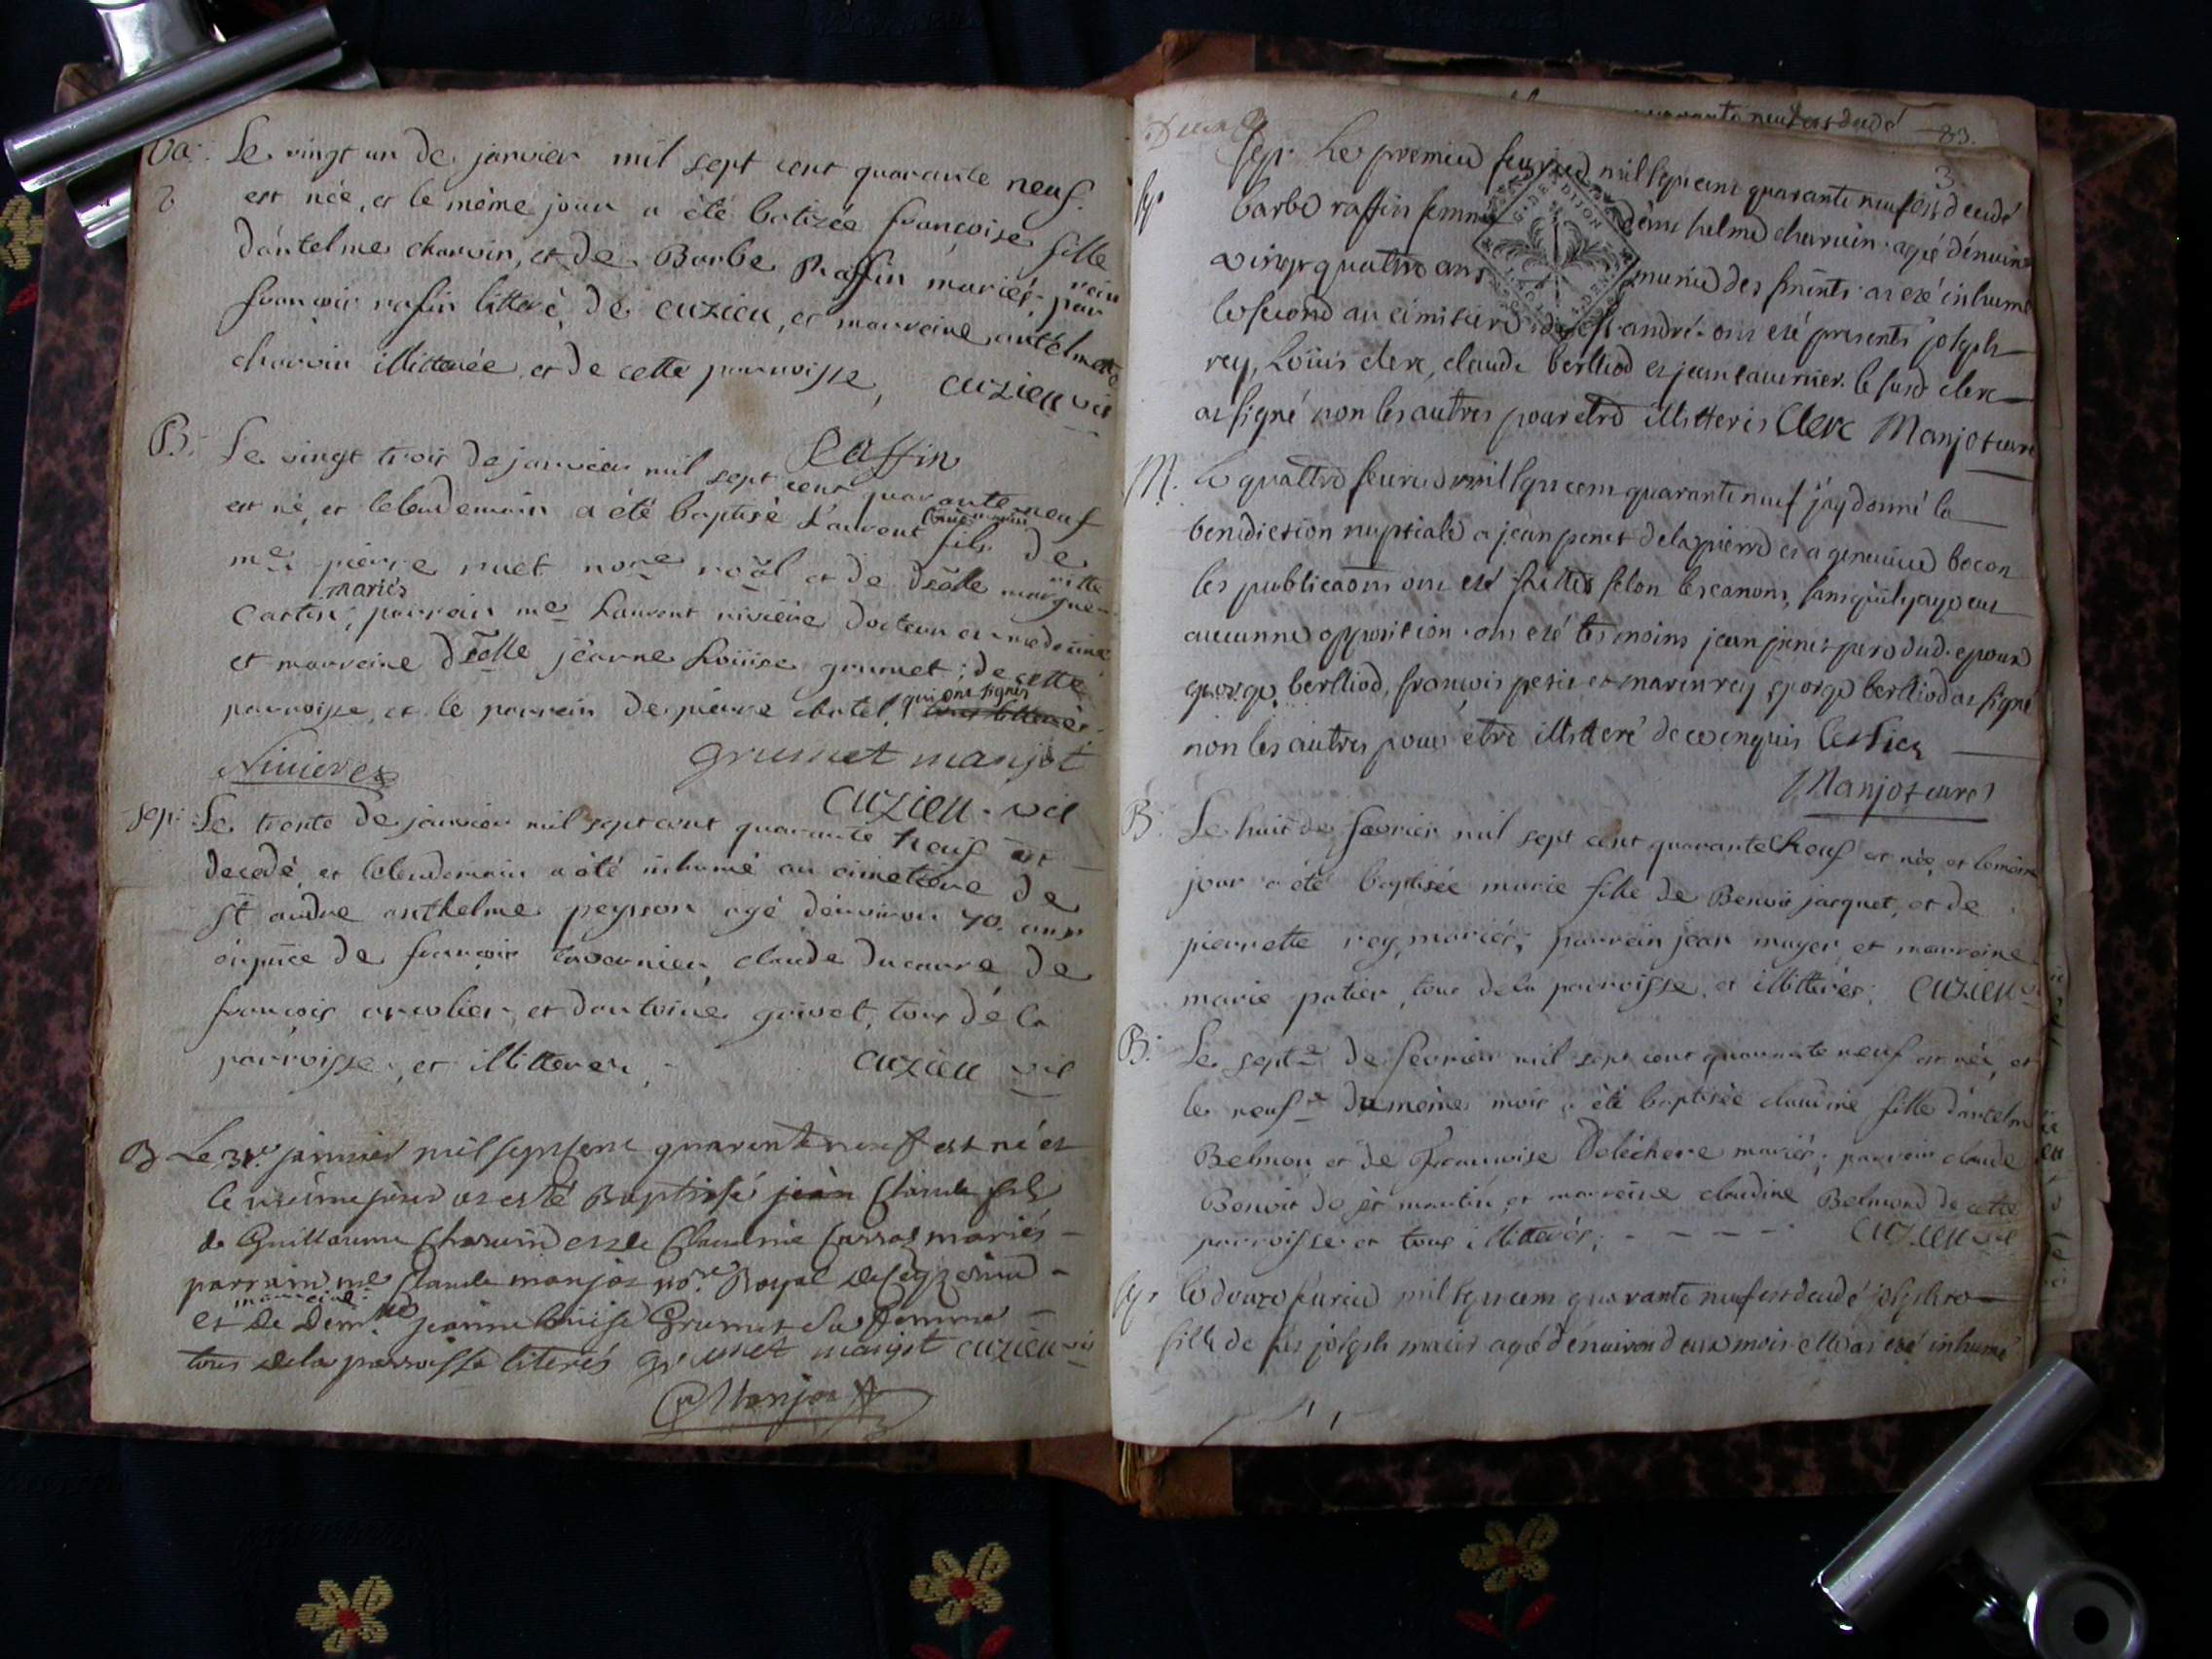 Ba:
Le vingt un de janvier mil sept cent quarante neuf
est née, et le même jour a été batizée francoise fille
d'antelme charvin, et de Barbe Raffin mariés; parrein
francois rafin litteré, de cuzieu, et marreine antelmette
charvin illitterée et de cette parroisse, cuzieu vic
Raffin
B:
Le vingt trois de janvier mil sept cent quarante neuf
est né, et le lendemain a été baptisé Laurent fils de
me pierre nore roäl et de dlle margueritte
mariés
parrain me Laurent riviere docteur en medecine
et marreine dlle jeanne Loüise grumet; de cette
parroisse, et le parrein de pierre chatel, qui ont signés
Riviere grumet manjot
cuzieu vic
sep:
Le trente de janvier mil sept cent quarante neuf est
decedé, et le lendemain a été inhumé au cimetiere de
st andre anthelme peysson agé d'environ 70 ans
en puce de francois tavernier, claude ducarre de
francois et d'antoine grivet, tous de la
parroisse, et illitterer, cuzieu vic
B
Le 31e janvier mil sept cent quarante neuf est né et
le même jour at esté Baptissé jean Claude fils
de Guillaume Charvin et de Claudine mariés
parrain me Claude manjot nore Royal
marreine
et de Demlle jeanne Louise Grumet sa femme
tous de la parroisse literés grumet manjot cuzieu vic
Manjot
83.
3
Sep. Le premier feuvrier mil sept cent quarante neuf est decedé
barbe raffin femme d'anthelme charvin agé d'enuiron
vingt quattre ans munie des sacrements at eté inhumé
le second au cimitiere de st andré. ont eté presents joseph
rey, Loüis clerc, claude berlliod et jean tavernier. le susd clerc
at signé non les autres pour etre illitteris Clerc Manjot curé
M.
le quattre feuvrier mil sept cent quarante neuf j'ay donné la
benediction nuptiale a jean penet de la pierre et a genevieve bocon
les publicaöns ont eté faittes selon les canons, sans qu'il y aye eut
aucunne opposition. ont eté tesmoins jean penet pere dud. epoux
george berlliod, françois petit et marin rey george berlliod at signé
non les autres pour etre illitteré de ce enquis
Manjot curé
B:
Le huit de fevrier mil sept cent quarante neuf est née, et le même
jour a été baptisée marie fille de Benoit jacquet, et de
pierrette rey mariés, parrein jean muger et marreine
marie patier, tous de la parroisse, et illitterés; cuzieu vic
B:
Le septe de fevrier mil sept cent quarante neuf est née, et
le neufe du même mois a été baptisée claudine fille d'antelme
Belmon et de Francoise Deléchere mariés; parrein claude
Benoit de st martin, et marreine claudine Belmond de cette
parroisse et tous illitterés; cuzieu vic
Sep
le douze feuvrier mil sept cent quarante neuf est decedé
fille de feu joseph agé d'enuiron deux mois elle at eté inhumé